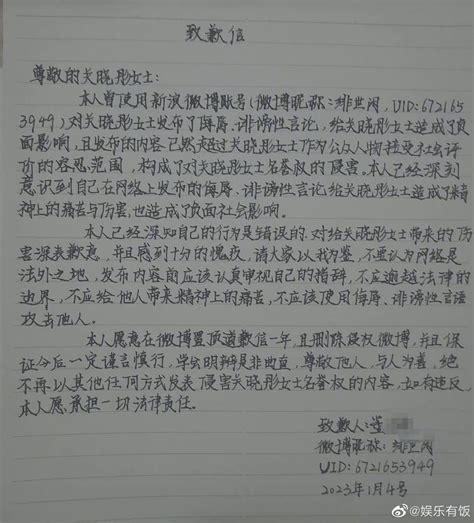 致歉信
尊敬的关晓彤女士:
本人曾使用新浪微博账号(微博昵称:绯世闵,UID:672165
3949)对关晓彤女士发布了侮辱、诽谤性言论,给关晓彤女士造成了负
面影响,且发布的内容已然超过关晓彤女士作为公众人物接受社会评
价的容忍范围,构成了对关晓彤女士名誉权的侵害。本人已经深刻
意识到自己在网络上发布的侮辱、诽谤性言论给关晓彤女士造成了精
神上的痛苦与伤害,也造成了负面社会影响。
本人已经深知自己的行为是错误的,对给关晓彤女士带来的伤
害深表歉意,并且感到十分的愧疚,请大家以我为鉴,不要认为网络是
法外之地,发布内容前应该认真审视自己的措辞,不应逾越法律的
边界,不应给他人带来精神上的痛苦,不应该使用侮辱、诽谤性言语
攻击他人。
本人愿意在微博置顶道歉信一年,且删除侵权微博,并且保
证今后一定谨言慎行,学会明辨是非曲直,尊敬他人,与人为善,绝
不再以其他任何方式发表侵害关晓彤女士名誉权的内容,如有违反
本人愿承担一切法律责任。
致歉人:董
微博昵称:绯世闵
UID:6721653949
2023年1月4号
@娱乐有饭